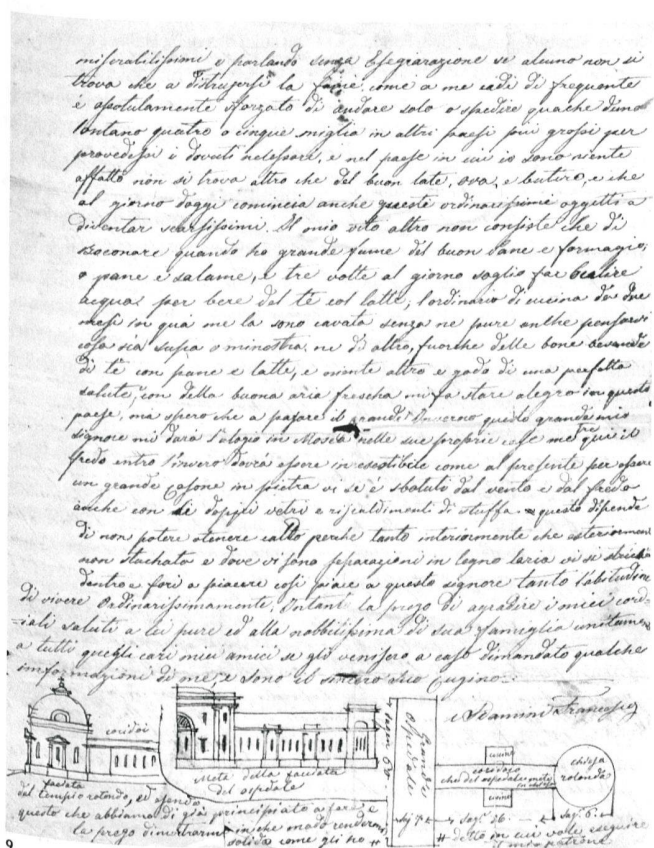 miserabilissimi e parlando senza esegrarazione se aluno non si
trova che a distrujersi la fame come a me cade di frequente
e asolutamente sforzato di andare solo o spedire quache d'uno
lontano quatro o cinque miglia in altri paesi più grossi per
provedersi i dovuti nelessari, e nel paese in cui io sono niente
affatto non si trova altro che del buon late, ova, e butirro, e che
al giorno doggi comincia anche queste ordinarissime oggetti a
diventar scarsissimi. Il mio vito altro non consiste che di
boconare quando ho grande fame del buon pane e formagio;
o pane e salame, e tre volte al giorno soglio far bolire
acqua per bere del tè col latte; l'ordinario di cucina da due
mesi in quà me la sono cavata senza ne pure anche pensarsi
cosa sia supa o minostra, ne d'altro, fuorche delle bone bevande
di tè con pane e latte, e niente altro e godo di una perfetta
salute, con della buona aria frescha mi fa stare alegro in questo
paese, ma spero che a pasare il grandi Inverno questo grande mio
signore mi darà l'alogio in Mosca nelle sue proprie case mentre qui il
fredo entro l'invero dovrà esere inesestibile come al presente per esere
un grande Casone in pietra vi si è sbatuti dal vento e dal fredo
anche con le doppji vetri e riscaldimenti di stuffa. questo dipende
di non potere otenere caldo perche tanto interiormente che esteriormen
non stachato e dove vi sono separazioni in legno laria vi si
dentro e fori a piacere così piace a questo signore tanto l'abitudine
di vivere Ordinarissimamente. Intant la prego di agradire i miei cord-
iali saluti a lei pure ed alla nobbilissima di sua famiglia unitamen
a tutti quegli cari miei amici se gli venisero a caso dimandato qualche
imformazioni di me, e sono il sincero suo Cugino.
Framini Francesco
coridoi
facciata
del tempio rotondo, ed esendo
questo che abbiamo di già principiato a farsi e
la prego di
Metà della faciata
del ospedale
in che modo rendermi
solida come gli ho #
Sagen 60
Grande
ospedale
cucina
coridoio
che del ospedale mete
in chiesa
cucina
chiesa
rotonda
Saj 7
Saj. 26.
Saj. 6.
# detto in cui vole eseguire
il mio patrone
9